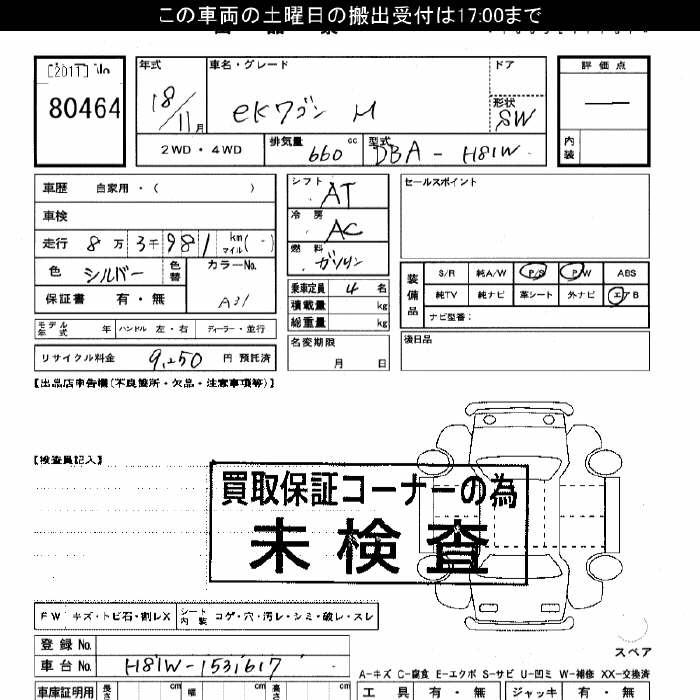 この車両の土曜日の搬出受付は17:00まで
[2017] No
80464
年式
18/11月
車名・グレード
eKワゴン M
ドア
形状
SW
評価点
内装
2WD・4WD
排気量
660 cc
型式
DBA - H81W
車歴 自家用・( )
車検
走行 8万3千981 km マイル(-)
色 シルバー
色替
カラーNo.
A31
保証書 有・無
シフト AT
冷房 AC
燃料 ガソリン
乗車定員 4 名
積載量 kg
総重量 kg
名変期限
月 日
セールスポイント
装備品
S/R 純A/W P/S P/W ABS
純TV 純ナビ 革シート 外ナビ エアB
ナビ型番:
後日品
モデル年式 年 ハンドル 左・右 ディーラー・並行
リサイクル料金 9,250 円 預託済
【出品店申告欄(不良箇所・欠品・注意事項等)】
【検査員記入】
買取保証コーナーの為
未検査
FW キズ・トビ石・割レX
シート内装 コゲ・穴・汚レ・シミ・破レ・スレ
登録No.
車台No. H81W-1531617
スペア
A-キズ C-腐食 E-エクボ S-サビ U-凹ミ W-補修 XX-交換済
車庫証明用 長さ cm 幅 cm 高さ cm
工具 有・無 ジャッキ 有・無